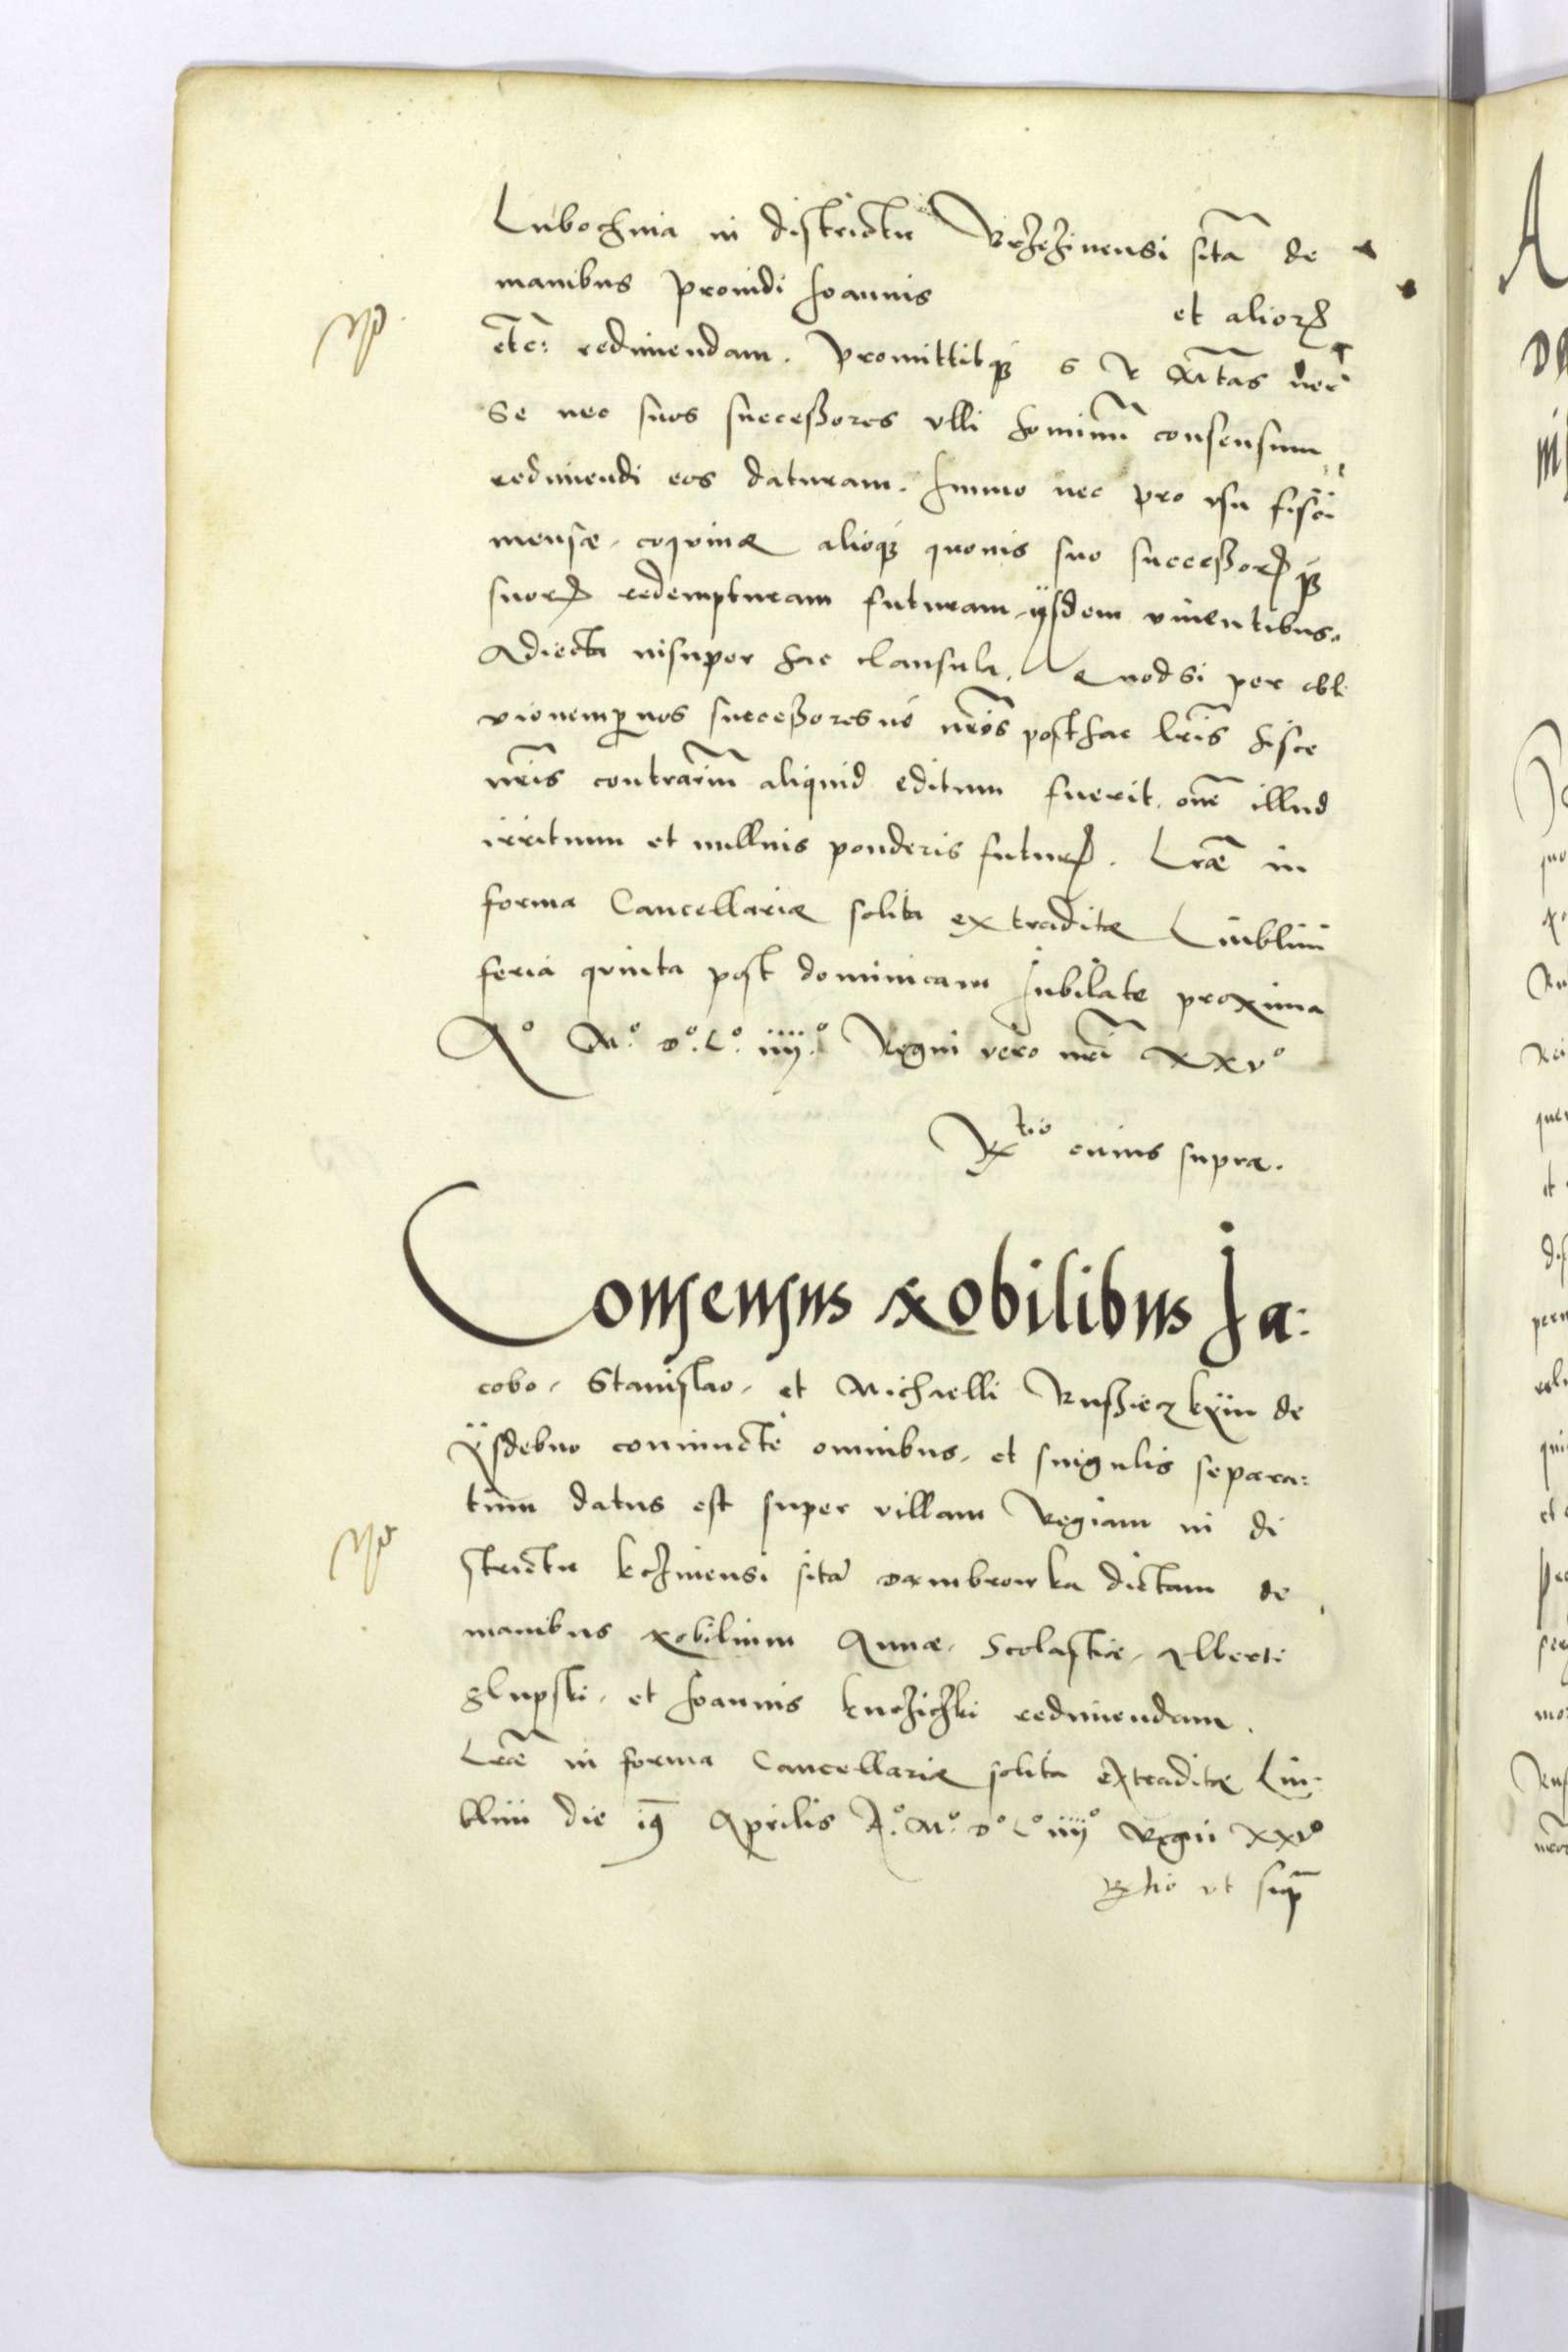 Lubochnia in districtu Brzezinensi sitã de
manibus prouidi Joannis et alior[um]
etc: redimendam. Promittitqȝ S R Mtãs nec
Se nec suos successores vlli hominũ consensum
redimendi eos daturam. Immo nec pro vsu fisci
mensæ, coquinæ alioqȝ quouis suo successor[um]qȝ
suor[um] redempturam futuram, ijsdem viuentibus.
Adiecta insuper hac clausula. Quod si per obli
uionem p[er] nos successoresue nr̃os posthac lr̃is hisce
nr̃is contrariũ aliquid editum fuerit, om̃e illud
irritum et nullius ponderis futur[um]. Lr̃æ in
forma Cancellariæ solita extraditæ Liublini
feria quinta post dominicam Jubilate proxima
Aº Mº. Dº. Lº. iiij.º Regni vero nr̃i XXVº
Rtio cuius supra.
Consensus Nobilibus Ja:
cobo, Stanislao, et Michaelli Russieczkÿm de
Ysdebno coniunctè omnibus, et singulis separa:
tim datus est super villam Regiam in di
strictu kczinensi sitã Dambrowka dictam de
manibus Nobilium Annæ, Scolasticæ, Alberti
glupski, et Joannis kucziczki redimendam.
Lr̃æ in forma Cancellariæ solita extraditæ Liu-
blini die 19 Aprilis Aº. Mº. Dº Lº iiijº Regni XXVº
Rtio vt sup[ra]